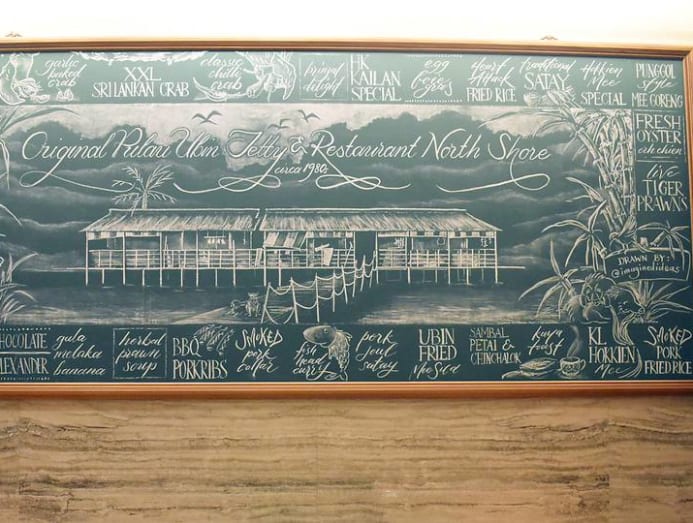 garlic
baked
crab
XXL
SRI LANKAN CRAB
classic
chilli
crab
primal
delight
HK
KAILAN
SPECIAL
egg
Heart
Attack
FRIED RICE
traditional
SATAY
Hokkien
Mee
SPECIAL
PUNGGOL
style
MEE GORENG
FRESH
OYSTER
live
TIGER
PRAWNS
Original Pulau Ubin Jetty & Restaurant North Shore
circa 1980s
DRAWN BY:
@imaginedideas
CHOCOLATE
gula
melaka
banana
herbal
prawn
soup
BBQ
PORKRIBS
SMOKED
pork
collar
fish
head
curry
pork
jowl
satay
UBIN
FRIED
SAMBAL
PETAI &
CHINCHALOK
kaya
toast
KL
HOKKIEN
Mee
SMOKED
PORK
FRIED RICE